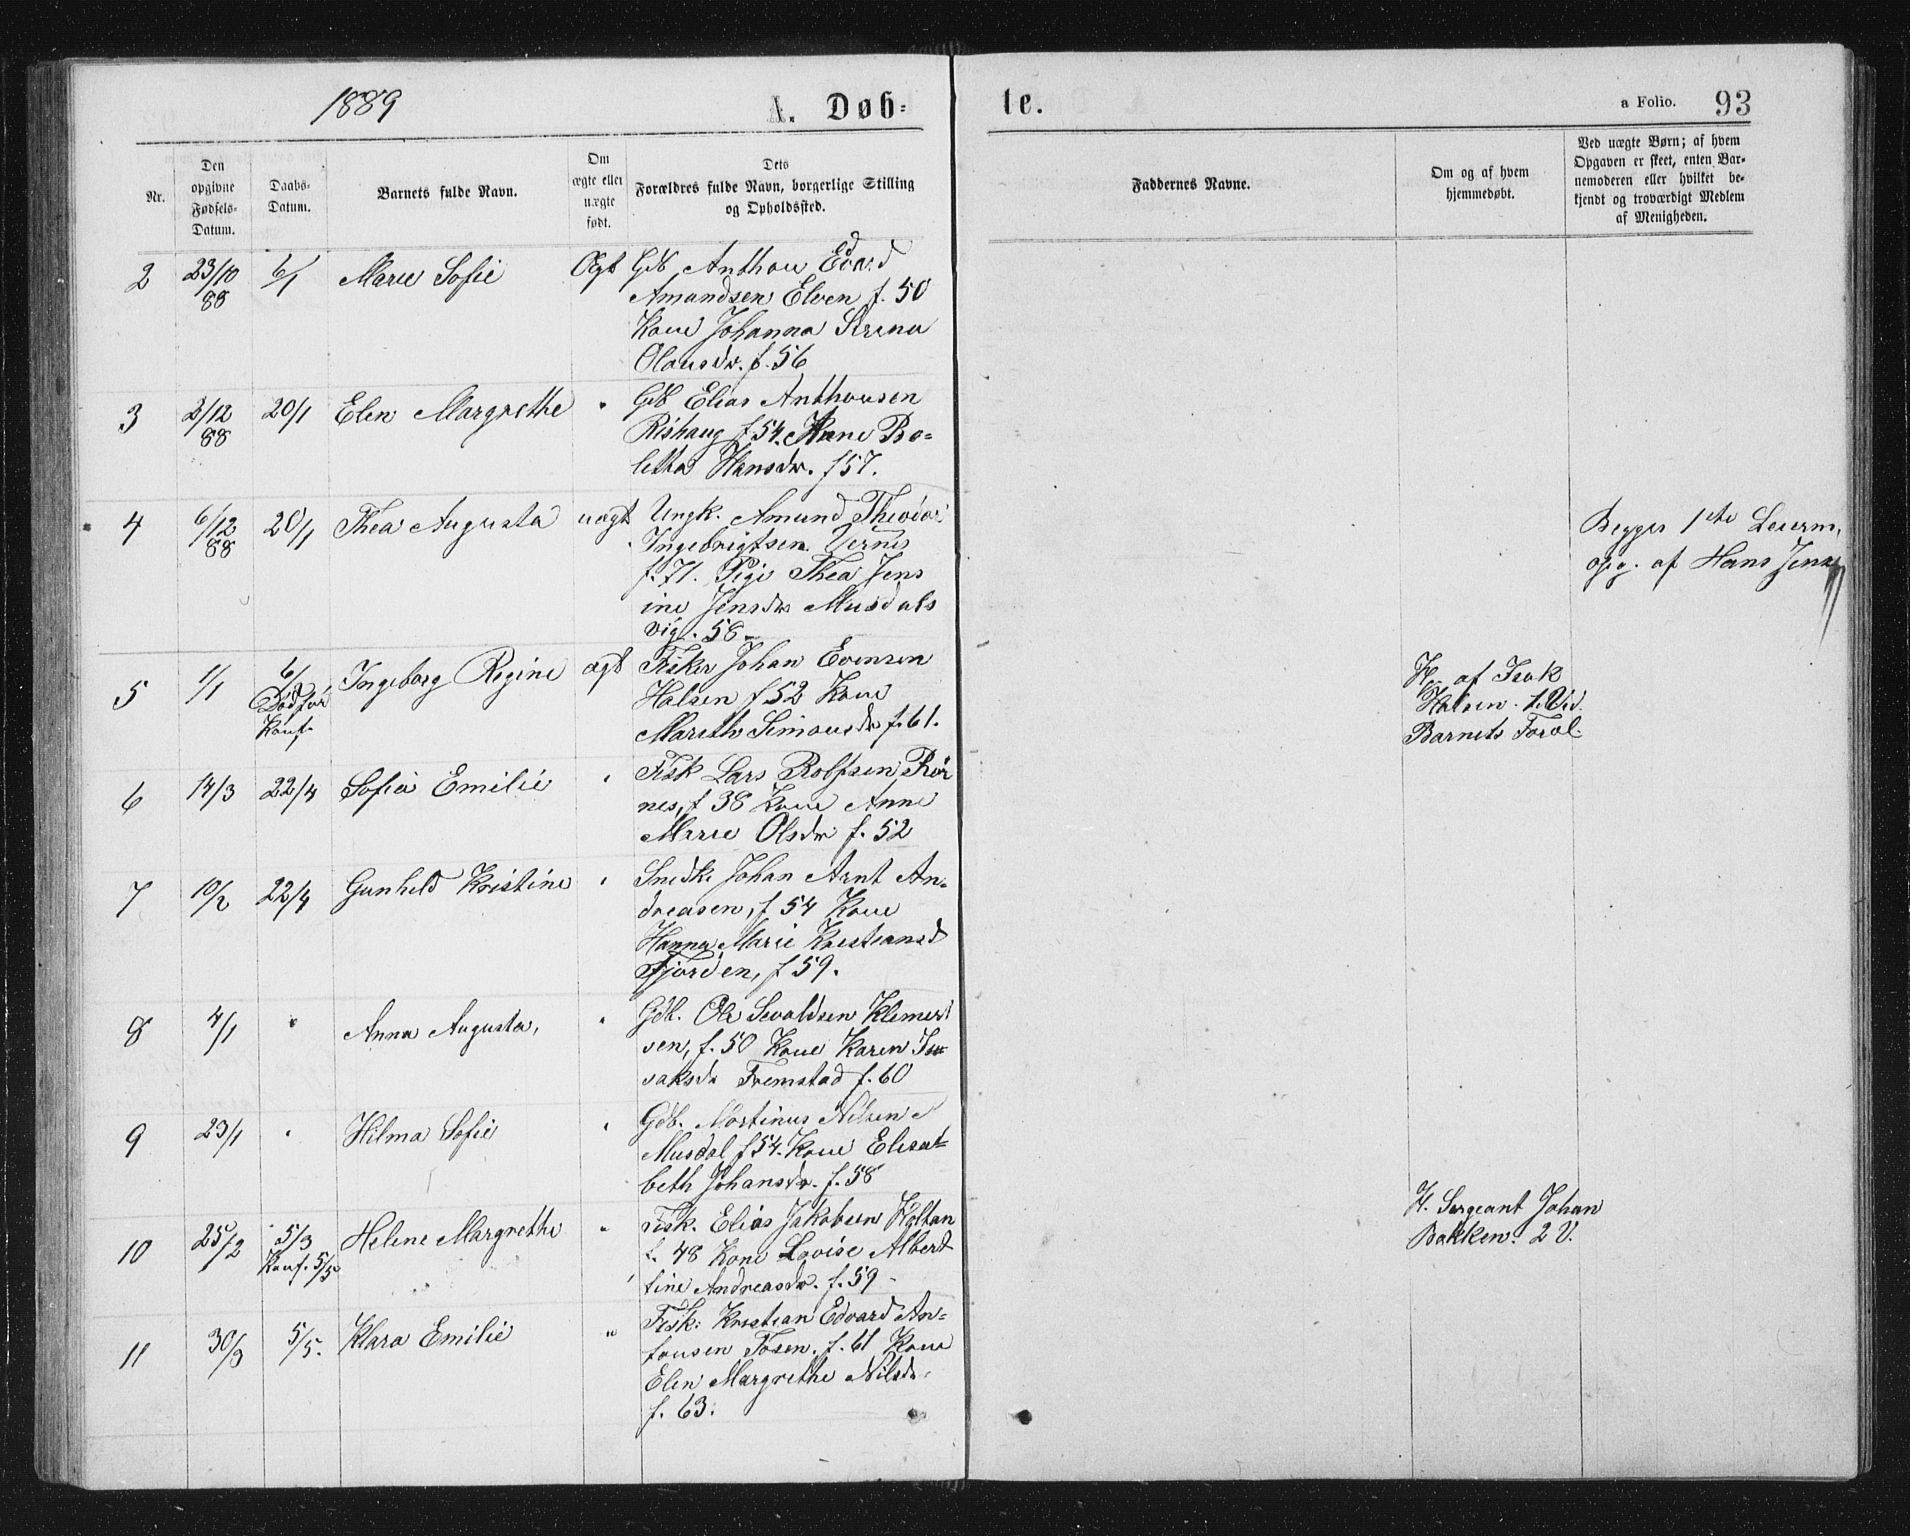 1889
A. Døb=
te.
a Folio. 93
Nr.
Den
opgivne
Fødsels-
Datum.
Daabs-
Datum.
Barnets fulde Navn.
Om
ægte eller
uægte
født.
Dets
Forældres fulde Navn, borgerlige Stilling
og Opholdssted.
Faddernes Navne.
Om og af hvem
hjemmedøbt.
Ved uægte Børn; af hvem
Opgaven er skeet, enten Bar-
nemoderen eller hvilket be-
kjendt og troværdigt Medlem
af Menigheden.
2 23/10 6/1 Marie Sofie Ægt Gdb Anthon Edvard
88 Amandsen Elven f. 50
Kone Johanna Serina
Olausdr. f. 56
3 2/12 20/1 Elen Margrethe " Gdb Elias Anthonsen
88 Rishaug f 54. Anne Bo-
letta Hansdr. f 57.
4 6/12 20/1 Thea Augusta uægt Ungk. Amund Theodor
88 Ingebrigtsen Vernes
f. 71. Pige Thea Jens
ine Jensdr Musdals
vig. 58
Begges 1ste Leierm,
opg. af Hans
5 1/1 6/1 Ingeborg Regine ægt Fisker Johan Evensen
Død før Halsen f 52 Kone
Konf. Mareth Simonsdr f. 61.
H. af Isak
Halsen.
Barnets Foræl.
6 14/3 22/4 Sofie Emilie " Fisk Lars Rolfsen Rør
nes, f 38 Kone Anne
Marie Olsdr f. 52
7 10/2 22/4 Gunhild Kristine " Snedk. Johan Arnt An-
dreasen, f 54 Kone
Hanna Marie Kristiansd
Fjorden, f 59.
8 4/1 " Anna Augusta, " Gdb. Ole Sevaldsen Klemet
sen, f. 50 Kone Karen I-
saksdr Fremstad f. 60
9 23/1 " Hilma Sofie " Gdb. Martinus Nilsen
Musdal f 54. Kone Elisa-
beth Johansdr. f. 58
10 25/2 5/3 Helene Margrethe " Fisk. Elias Jakobsen Holtan
Konf. 5/5 f. 48 Kone Lovise Albert
tine Andreasdr. f. 59
H. Sergeant Johan
Bakken. 2 V.
11 30/3 5/5. Klara Emilie " Fisk: Kristian Edvard An-
tonsen Tosen. f. 61 Kone
Elen Margrethe Nilsdr.
f. 63.